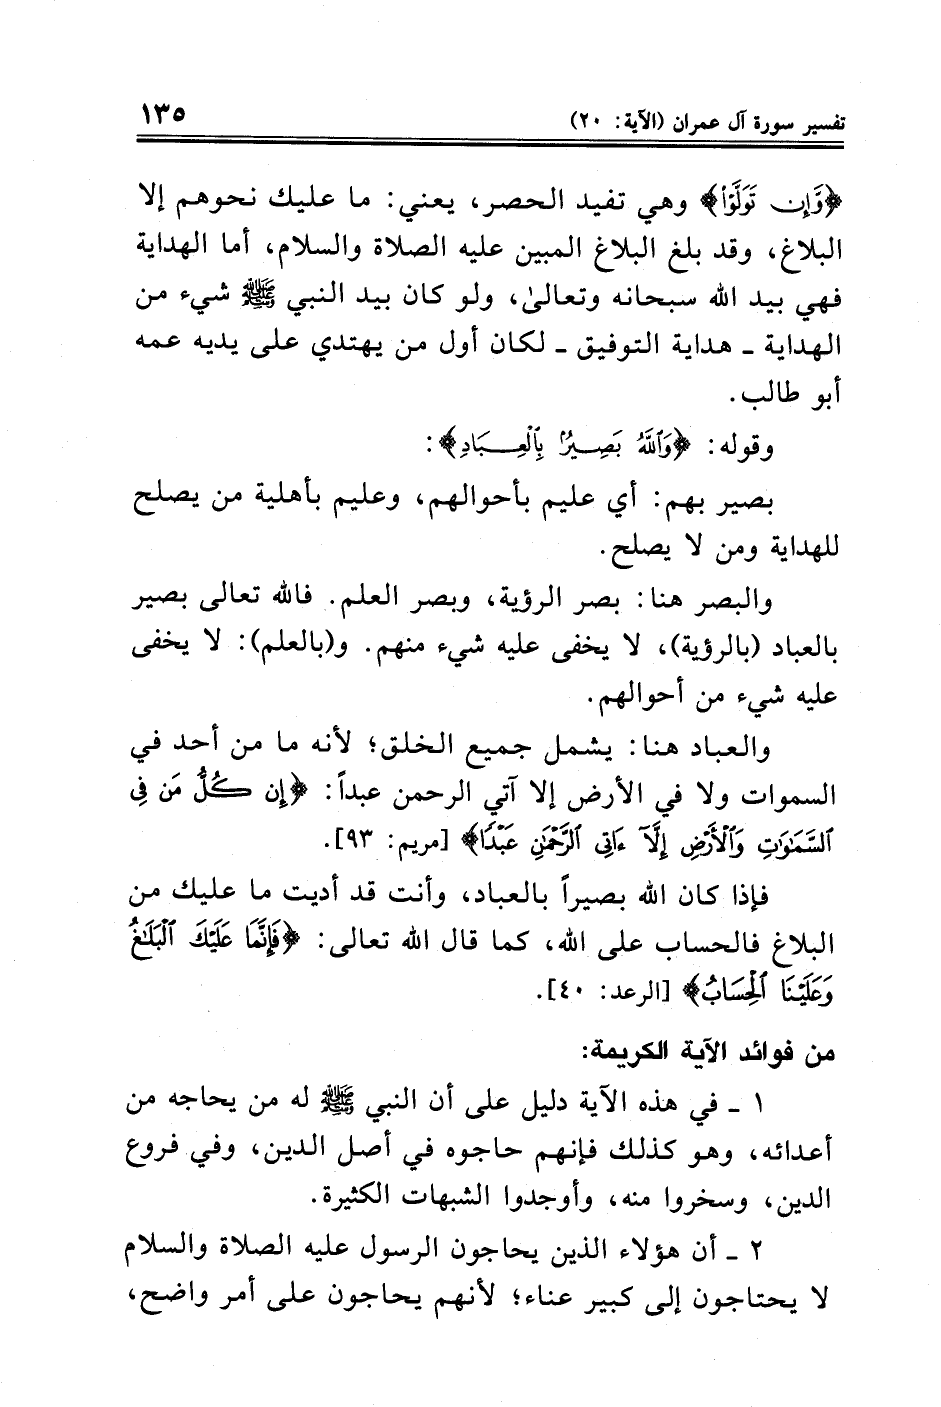 تفسير سورة آل عمران (الآية: ٢٠) ١٣٥
﴿وَّإِن تَوَلَّوْا۟﴾ وهي تفيد الحصر، يعني: ما عليك نحوهم إلا
البلاغ، وقد بلغ البلاغ المبين عليه الصلاة والسلام، أما الهداية
فهي بيد الله سبحانه وتعالىٰ، ولو كان بيد النبي ﷺ شيء من
الهداية ـ هداية التوفيق ـ لكان أول من يهتدي على يديه عمه
أبو طالب.
وقوله: ﴿وَٱللَّهُ بَصِيرٌۢ بِٱلْعِبَادِ﴾:
بصير بهم: أي عليم بأحوالهم، وعليم بأهلية من يصلح
للهداية ومن لا يصلح.
والبصر هنا: بصر الرؤية، وبصر العلم. فالله تعالى بصير
بالعباد (بالرؤية)، لا يخفى عليه شيء منهم. و(بالعلم): لا يخفى
عليه شيء من أحوالهم.
والعباد هنا: يشمل جميع الخلق؛ لأنه ما من أحد في
السموات ولا في الأرض إلا آتي الرحمن عبداً: ﴿إِن كُلُّ مَن فِى
ٱلسَّمَٰوَٰتِ وَٱلْأَرْضِ إِلَّآ ءَاتِى ٱلرَّحْمَٰنِ عَبْدًا﴾ [مريم: ٩٣].
فإذا كان الله بصيراً بالعباد، وأنت قد أديت ما عليك من
البلاغ فالحساب على الله، كما قال الله تعالى: ﴿فَإِنَّمَا عَلَيْكَ ٱلْبَلَٰغُ
وَعَلَيْنَا ٱلْحِسَابُ﴾ [الرعد: ٤٠].
من فوائد الآية الكريمة:
١ ـ في هذه الآية دليل على أن النبي ﷺ له من يحاجه من
أعدائه، وهو كذلك فإنهم حاجوه في أصل الدين، وفي فروع
الدين، وسخروا منه، وأوجدوا الشبهات الكثيرة.
٢ ـ أن هؤلاء الذين يحاجون الرسول عليه الصلاة والسلام
لا يحتاجون إلى كبير عناء؛ لأنهم يحاجون على أمر واضح،